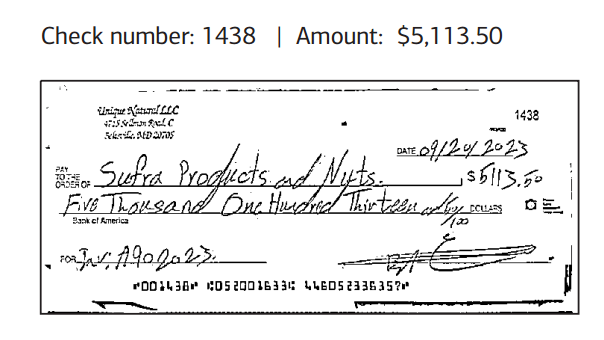 Check number: 1438 | Amount: $5,113.50
Unique Natural LLC
4715 Sellman Road, C
MD 20705
1438
DATE 09/20/2023
PAY TO THE ORDER OF Sufra Products and Nuts. $5113.50
Five Thousand One Hundred Thirteen and 50/100 DOLLARS
Bank of America
FOR Inv: A902023.
⑈001438⑈ ⑆052001633⑆ 446052336357⑈